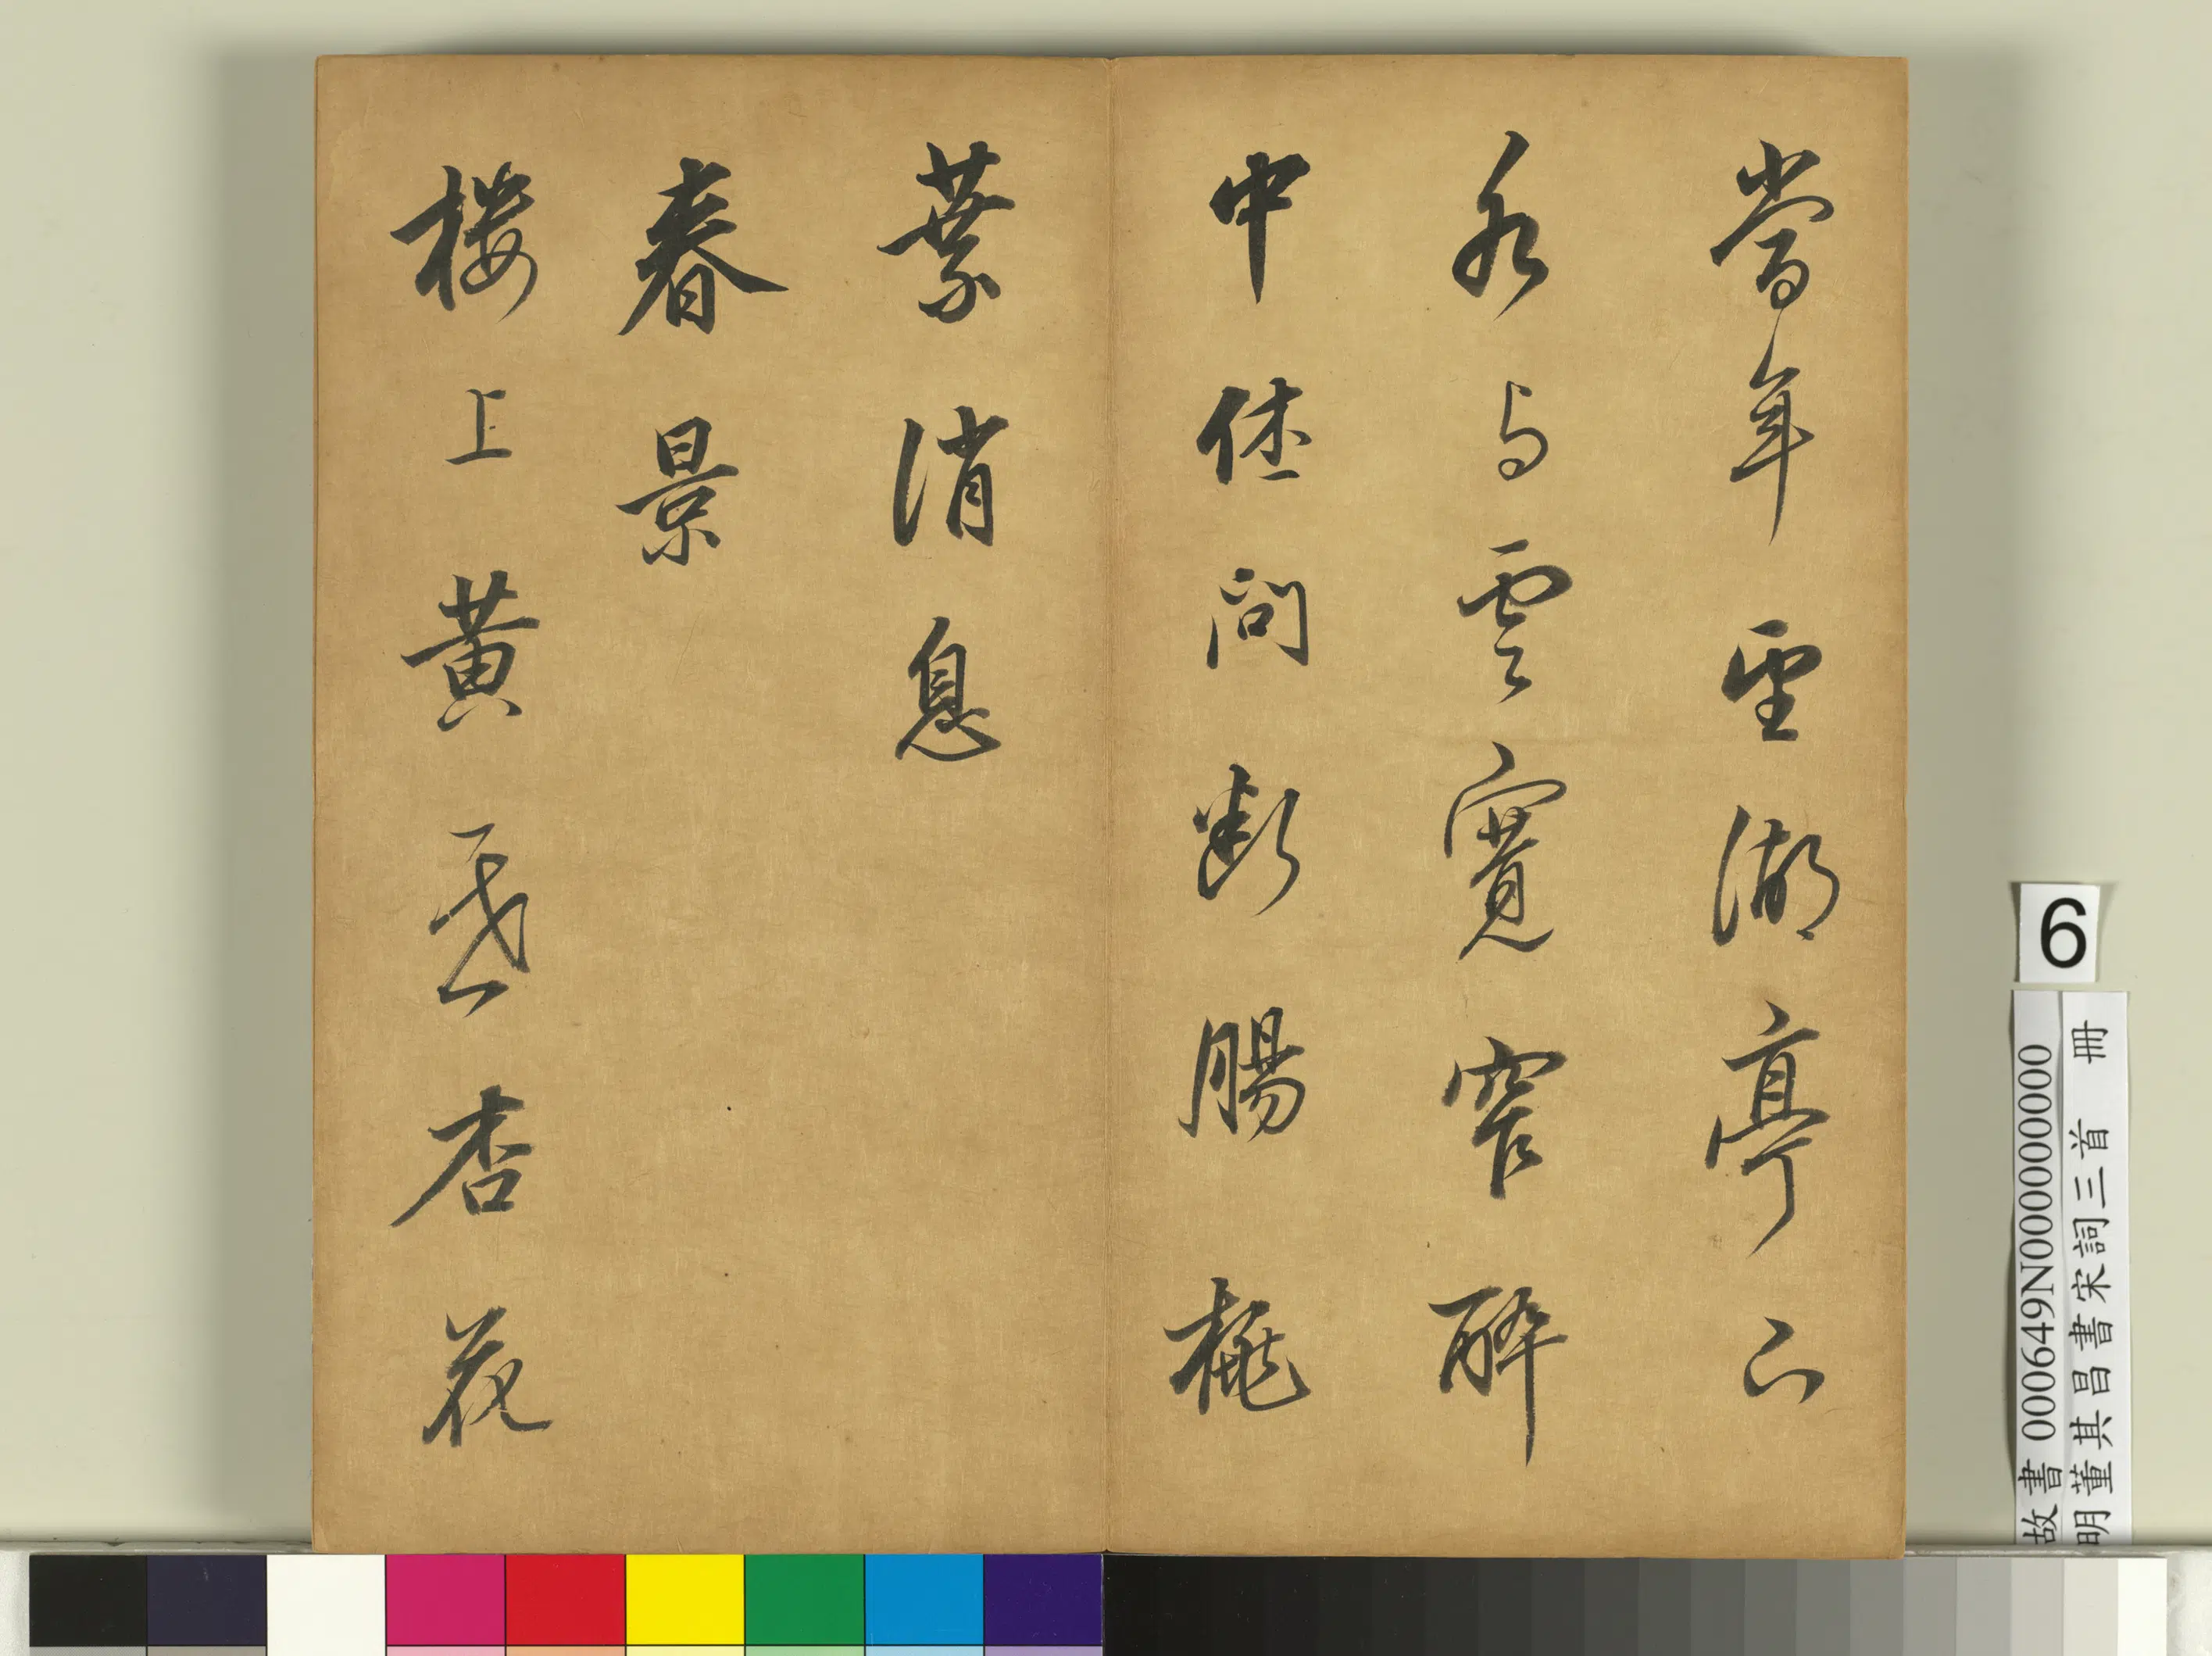 當年望湖亭下
水与雲寬窄醉
中休问斷腸桃
葉消息
春景
樓上黃昏杏花
6
故書 000649N000000000
明董其昌書宋詞三首 冊